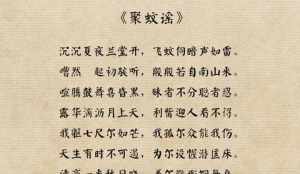 《聚蚊谣》
沉沉夏夜兰堂开，飞蚊伺暗声如雷。
嘈然 起初骇听，殷殷若自南山来。
喧腾鼓舞喜昏黑，昧者不分聪者惑。
露华滴沥月上天，利觜迎人看不得。
我躯七尺尔如芒，我孤尔众能我伤。
天生有时不可遏，为尔设幄潜匡床。